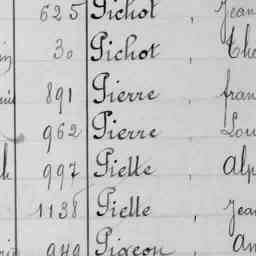 625 Pichot, Jean
30 Pichot, The
891 Pierre, fran
962 Pierre, Lou
997 Piette, Alp
1138 Piette, Jean
949 Pigeon, An